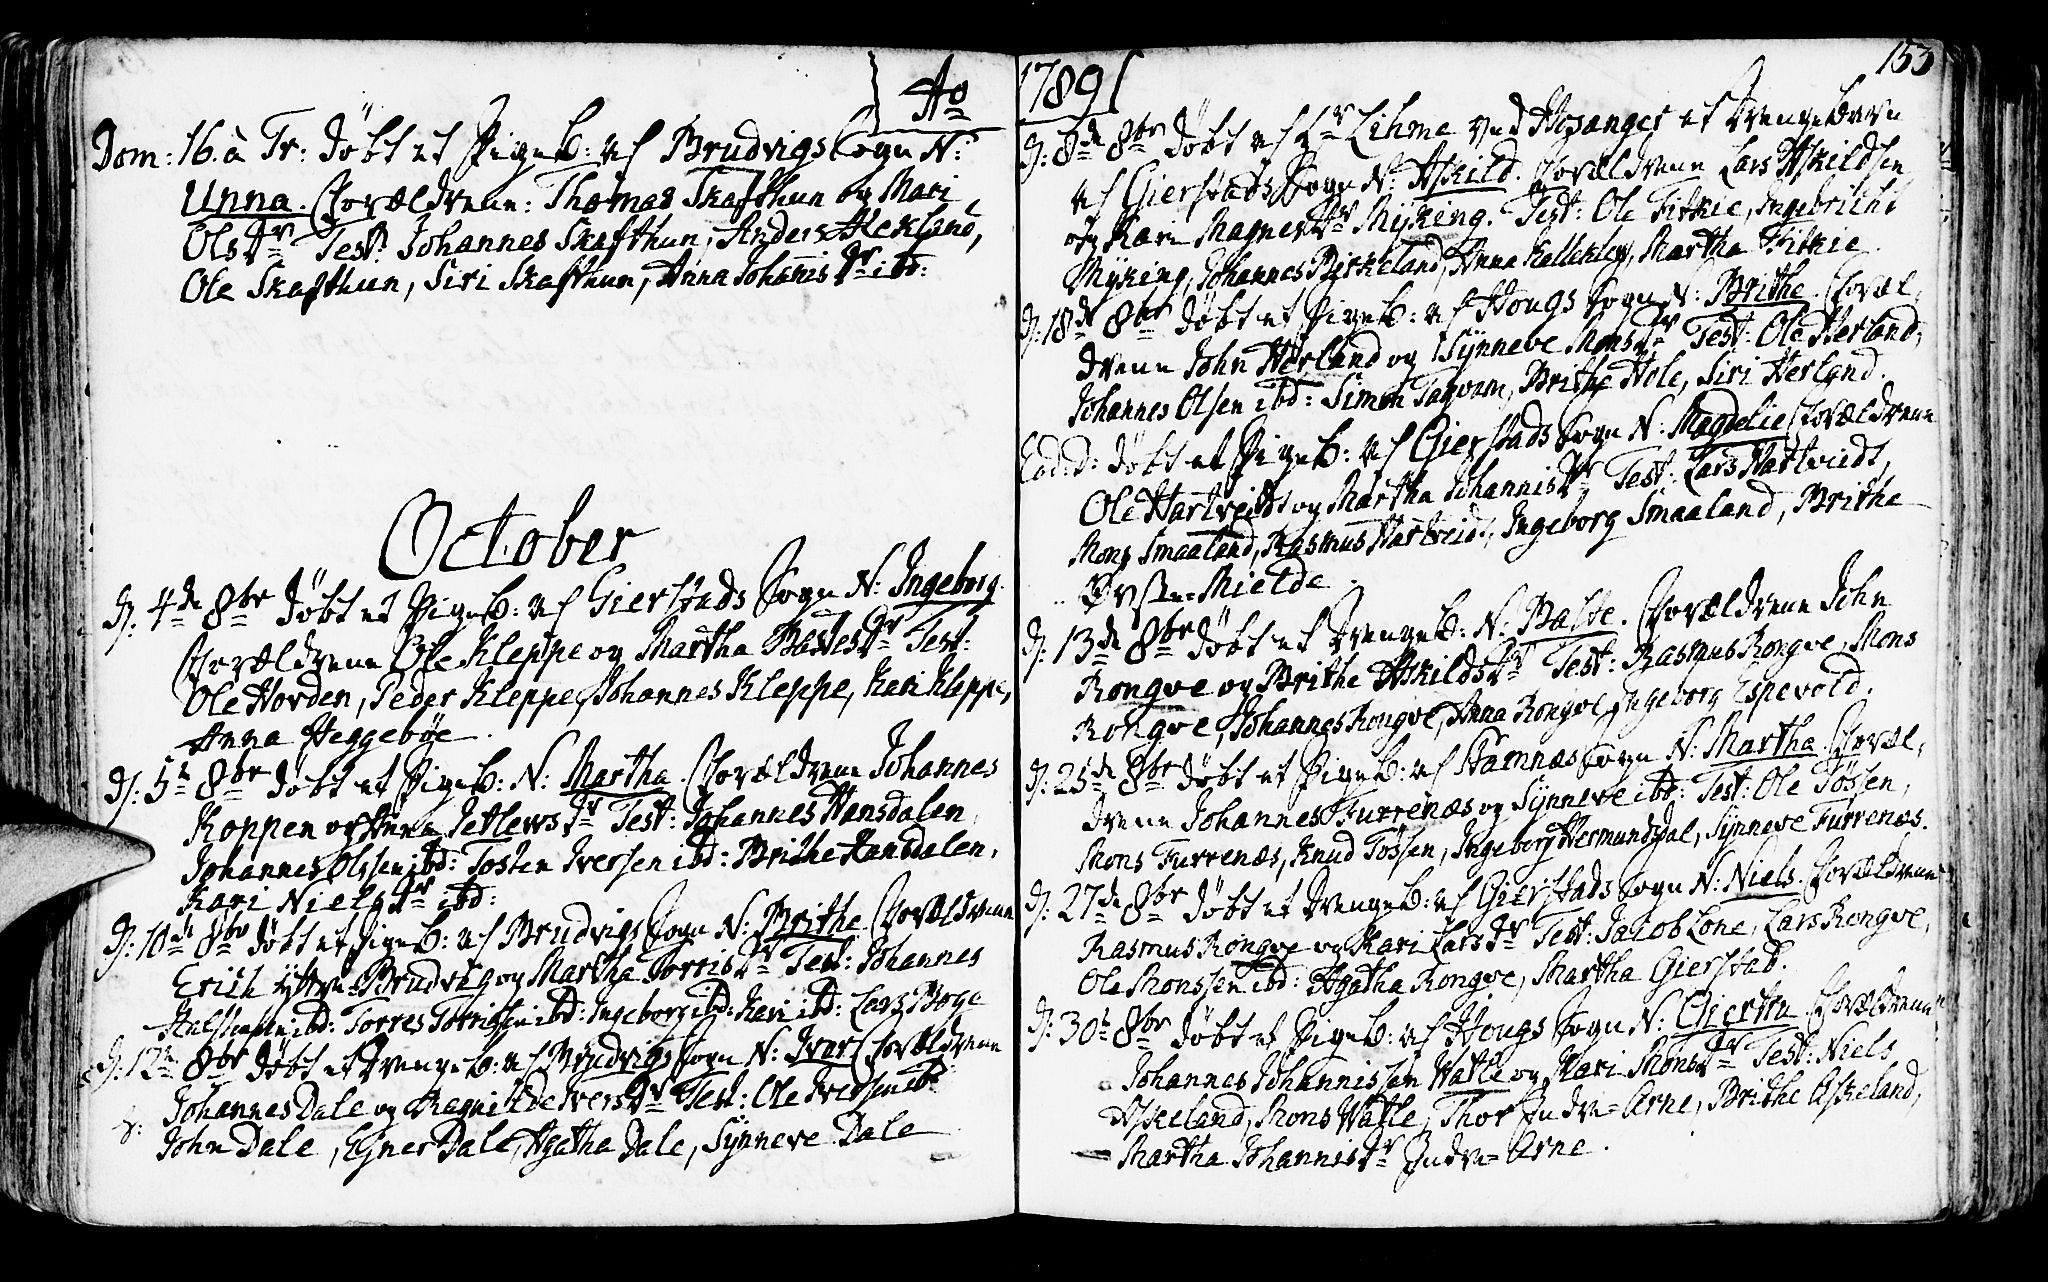 Ao
Dom: 16. à Tr: døbt et Pigeb: af Brudvigs Sogn N:
Unna. Forældrene: Thomas Skafthun og Mari
Olsdr Test: Johannes Skafthun, Anders Hekland,
Ole Skafthun, Siri Skafthun, Anna Johannisdr ibd:
October
D: 4de 8br døbt et Pigeb: af Gierstads Sogn N: Ingeborg.
Forældrene Ole Kleppe og Martha Bastesdr Test:
Ole Horden, Peder Kleppe, Johannes Kleppe, Kari Kleppe,
Anna Heggebøe.
D: 5te 8br døbt et Pigeb: N: Martha. Forældrene Johannes
Koppen og Anna Detlewsdr Test: Johannes Hansdalen,
Johannes Olssen ibd: Tosten Iversen ibd: Brithe Hansdalen,
Kari Nielsdr ibd:
D: 10de 8br døbt et Pigeb: af Brudvigs Sogn N: Brithe Forældrene
Erich ÿttre=Brudvig og Martha Torrisdr Test: Johannes
ibd: Torres Torrissen ibd: Ingeborg ibd: Kari ibd: Lars Boge
D: 12te 8br døbt et Drengeb: af Brudvigs Sogn N: Ivar Forældrene
Johannes Dale og Ragnilde Iversdr Test: Ole Iversen ibd:
John Dale, Egner Dale, Agatha Dale, Sÿnneve Dale
1789
153
D: 8de 8br døbt af Hr Lihme ved Hosanger et Drengebarn
af Gierstads Sogn N: Askild. Forældrene Lars Askildsen
og Kari Magnesdr Mÿking. Test: Ole Fitkie, Ingebricht
Mÿking, Johannes Birkeland, Anna Kallekley, Martha Fitkie.
D: 18de 8br døbt et Pigeb: af Hougs Sogn N: Brithe. Foræl,
drene John Herland og Sÿnneve Monsdr Test: Ole Herland,
Johannes Olsen ibd: Simon Tagvam, Brithe Hole, Siri Herland.
Eod: d: døbt et Pigeb: af Gierstads Sogn N: Magdelie Forældrene
Ole Hartveidt og Martha Johannisdr Test: Lars Hartveidt,
Mons Smaaland, Rasmus Hartveid:, Ingeborg Smaaland, Brithe
Øvste=Mielde.
D: 13de 8br døbt et Drengeb: N: Baste. Forældrene John
Rongve og Brithe Askildsdr Test: Rasmus Rongve, Mons
Rongve, Johannes Rongve, Anna Rongve, Ingeborg Espevold.
D: 25de 8br døbt et Pigeb: af Stamnæs Sogn N: Martha. Foræl,
drene Johannes Furrenæs og Sÿnneve ibd: Test: Ole Tøssen,
Mons Furrenæs, Knud Tøssen, Ingeborg Hermundsdal, Sÿnneve Furrenæs.
D: 27de 8br døbt et Drengeb: af Gierstads Sogn N: Niels. Forældrene
Rasmus Rongve og Kari Larsdr Test: Jacob Lone, Lars Rongve,
Ole Monssen ibd: Agatha Rongve, Martha Gierstad.
D: 30te 8br døbt et Pigeb: af Hougs Sogn N: Giertru. Forældrene
Johannes Johannissen Watle og Kari Monsdr Test: Niels
Askeland, Mons Watle, Thor Indre=Arne, Brithe Askeland,
Martha Johannisdr Indre=Arne.